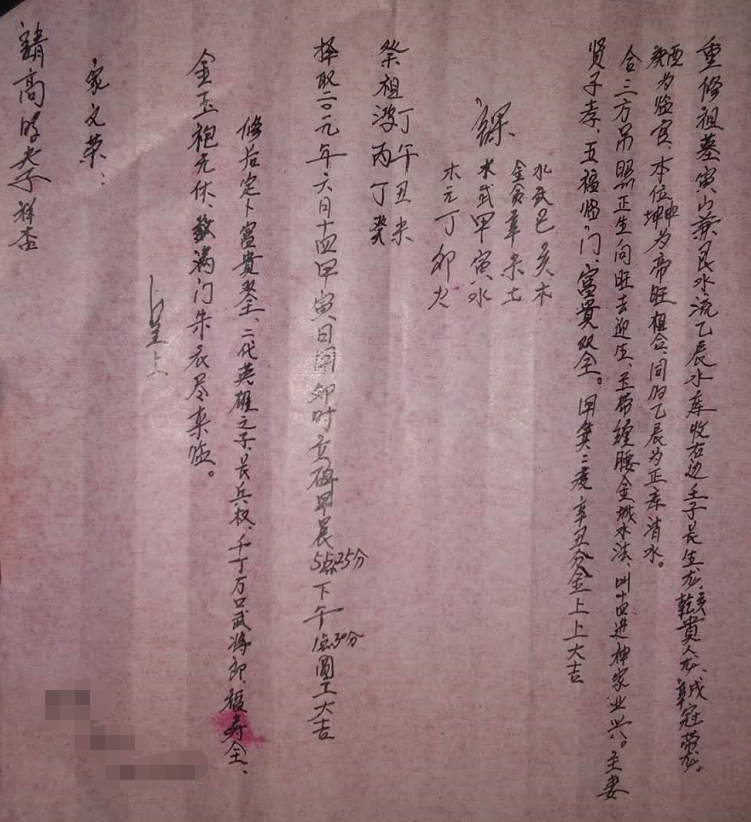 重修祖墓寅山兼艮水流乙辰水库收右边壬子长生龙、乾亥贵人龙、辛戌冠带龙。
庚酉为临官、本位坤申为帝旺組合、同归乙辰为正库消水。
合三方吊照正生向旺去迎生、玉带缠腰金城水法、叫十四进神家业兴。主妻
贤子孝、五福临门、富贵双全。用箕二度辛丑分金上上大吉
課
水 己亥木
金 辛未土
水 甲寅水
木 丁卯火
祭祖 丁午丑未
丙丁癸
择取二〇一九年六月十四甲寅日用卯时立碑早晨5点25分下午1点30分圆工大吉
修后定卜富贵全、二代英雄之子、长兵权、千丁万口武将郎、福寿全、
金玉袍 满门朱衣尽来临。
卜呈上
家文荣：
請高明老子祥查